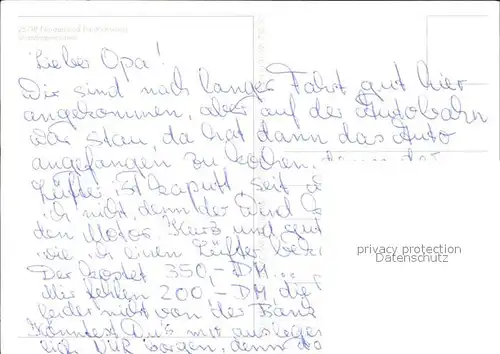 Lieber Opa!
Wir sind nach langer Fahrt gut hier
angekommen, aber auf der Autobahn
war Stau, da hat dann das Auto
angefangen zu kochen, denn der
Lüfter ist kaputt, seit
ich nicht, denn der wird
den Motor. Kurz und gut
wie ich einen Lüfter
Der kostet 350,- DM...
Mir fehlen 200,- DM, die
leider nicht von der Bank
Könntest Du's mir auslegen
NUR borgen, denn
privacy protection
Datenschutz